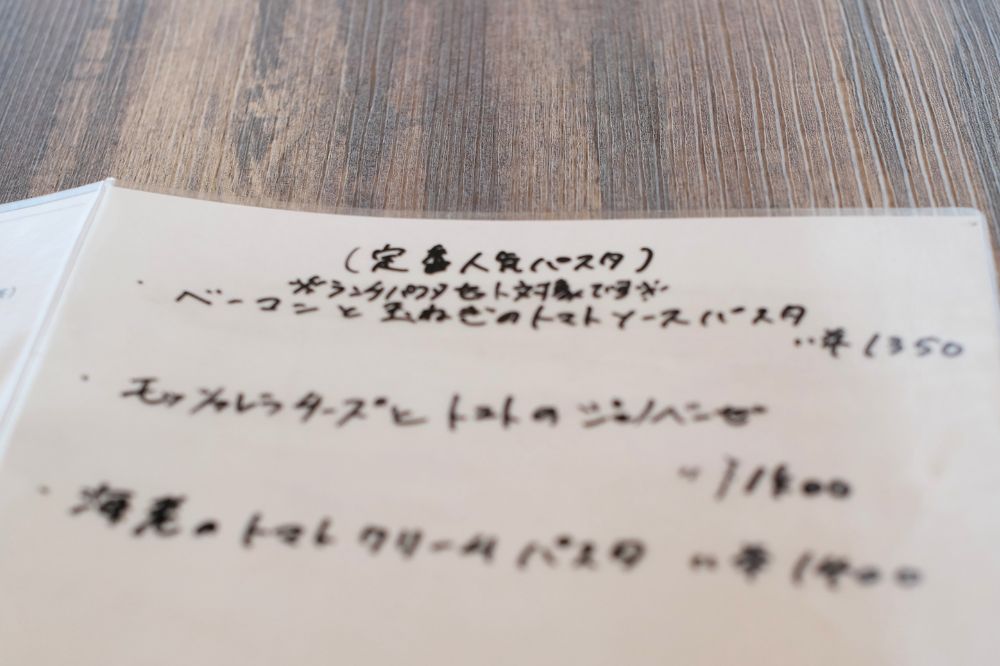 (定番人気パスタ)
※ランチパスタセット対象です※
・ベーコンと玉ねぎのトマトソースパスタ
‥¥1350
・モッツァレラチーズとトマトのジェノベーゼ
‥¥1400
・海老のトマトクリームパスタ ‥¥1400